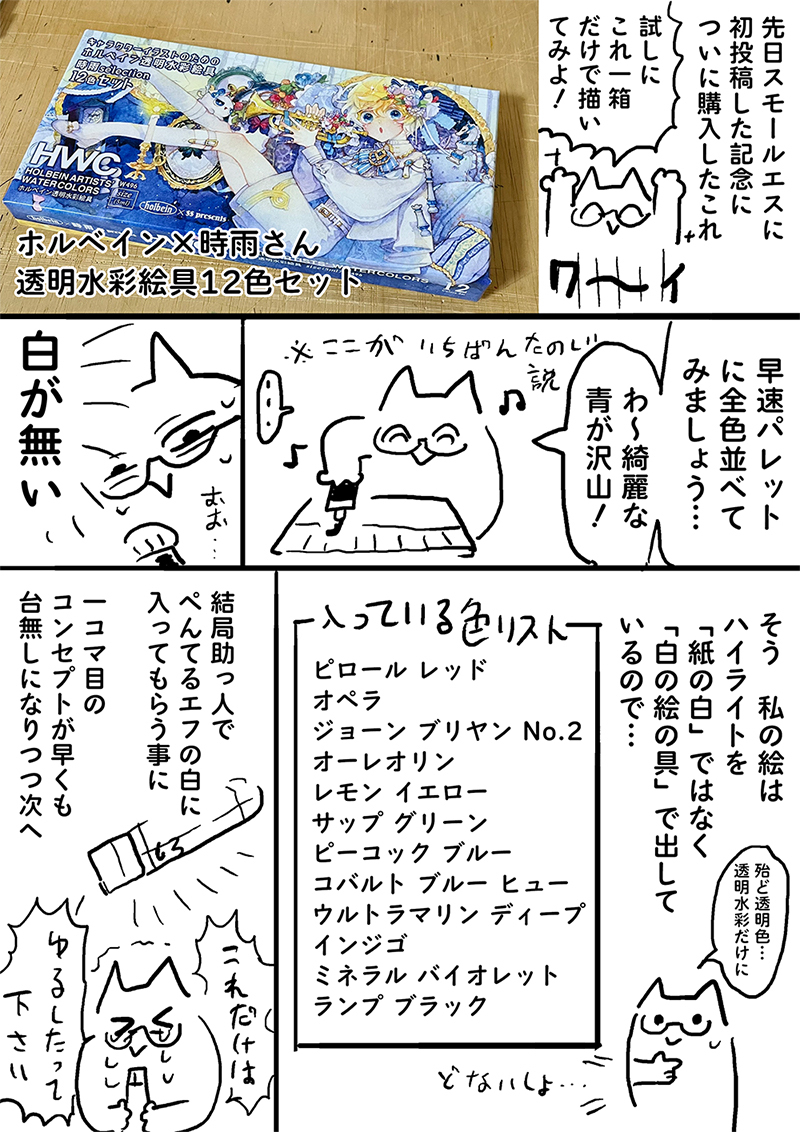 先日スモールエスに
初投稿した記念に
ついに購入したこれ
試しに
これ一箱
だけで描い
てみよ！
ワ〜イ
キャラクターイラストのための
ホルベイン透明水彩絵具
時雨selection
12色セット
HWC
HOLBEIN ARTISTS'
WATERCOLORS
W496
size
(5ml)
ホルベイン透明水彩絵具
holbein × SS presents
ホルベイン×時雨さん
透明水彩絵具12色セット
早速パレット
に全色並べて
みましょう…
わ〜綺麗な
青が沢山！
※ここがいちばんたのしい
説
…
白が無い
おお…
そう 私の絵は
ハイライトを
「紙の白」ではなく
「白の絵の具」で出して
いるので…
殆ど透明色…
透明水彩だけに
入っている色リスト
ピロール レッド
オペラ
ジョーン ブリヤン No.2
オーレオリン
レモン イエロー
サップ グリーン
ピーコック ブルー
コバルト ブルー ヒュー
ウルトラマリン ディープ
インジゴ
ミネラル バイオレット
ランプ ブラック
どないしょ…
結局助っ人で
ぺんてるエフの白に
入ってもらう事に
一コマ目の
コンセプトが早くも
台無しになりつつ次へ
しろ
これだけは
ゆるしたって
下さい